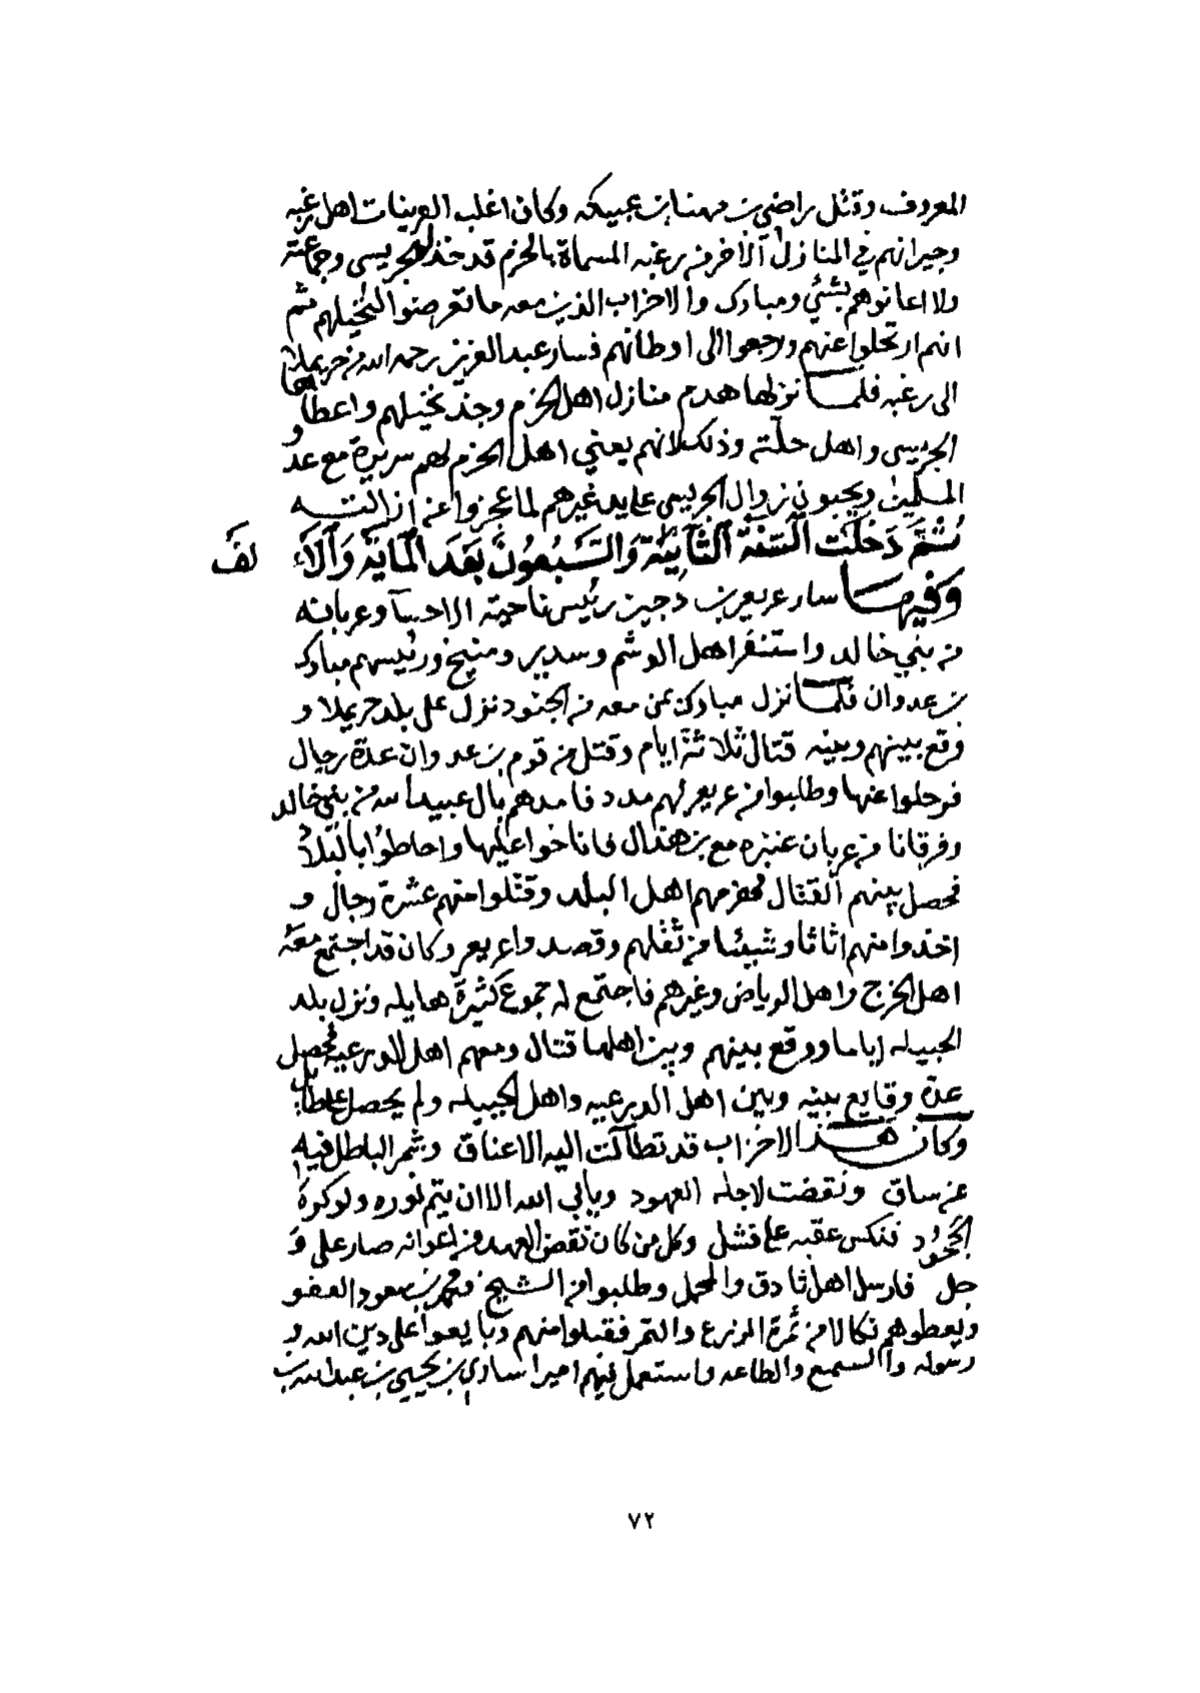 المعروف وقتل راضي بن مهنا بن عبيكه وكان اغلب العرينات اهل رغبه
وجيرانهم في المنازل الآخر من رغبه المسماة بالحزم قد خذلوا الجريسى وجماعته
ولا اعانوهم بشئي ومبارك والاحزاب الذين معه ما تعرضوا لنخيلهم ثم
انهم ارتحلوا عنهم ورجعوا الى اوطانهم فسار عبدالعزيز رحمه الله من حريملا
الى رغبه فلما نزلها هدم منازل اهل الحزم وجذ نخيلهم واعطاها
الجريسى واهل حلته وذلك لانهم يعني اهل الحزم لهم سريرة مع عدو
المسلمين ويحبون زوال الجريسى على يد غيرهم لما عجزوا عن ازالته
ثُمَّ دَخَلَت السَّنَةُ الثَّانِيَةُ وَالسَّبعُونَ بَعدَ المايَةَ وَالاَلفَ
وفيها سار عريعر بن دجين رئيس ناحية الاحسآ وعربانه
من بني خالد واستنفر اهل الوشم وسدير ومنيخ ورئيسهم مبارك
بن عدوان فلما نزل مبارك بمن معه من الجنود نزل على بلد حريملا و
وقع بينهم وبينه قتال ثلاثة ايام وقتل من قوم بن عدوان عدة رجال
فرحلوا عنها وطلبوا من عريعر لهم مدد فامدهم بال عبيدالله من بني خالد
وفرقانا من عربان عنزه مع بن هذال فاناخوا عليها واحاطوا بالبلاد
فحصل بينهم القتال فهزمهم اهل البلد وقتلوا منهم عشرة رجال و
اخذوا منهم اثاثا وشيئا من ثقلهم وقصدوا عريعر وكان قد اجتمع معه
اهل الخرج واهل الرياض وغيرهم فاجتمع له جموع كثيرة هايله ونزل بلد
الجبيله اياما ووقع بينهم وبين اهلها قتال ومعهم اهل الدرعيه فحصل
عدة وقايع بينه وبين اهل الدرعيه واهل الجبيله ولم يحصل على طايل
وكان هذا الاحزاب قد تطالت اليه الاعناق وشمر الباطل فيه
عن ساق ونقضت لاجله العهود ويابي الله الا ان يتم نوره ولو كره
الجحُود فنكس عقبه على فشل وكل من كان نقض العهد من اعوانه صار على و
جل فارسل اهل ثادق والمحمل وطلبوا من الشيخ ومحمد بن سعود العفو
ويعطوهم نكالا من ثمرة الزرع والتمر فقبلوا منهم وبايعوا على دين الله و
رسوله والسمع والطاعه واستعمل فيهم اميرا ساري بن يحيى بن عبدالله بن
٧٢